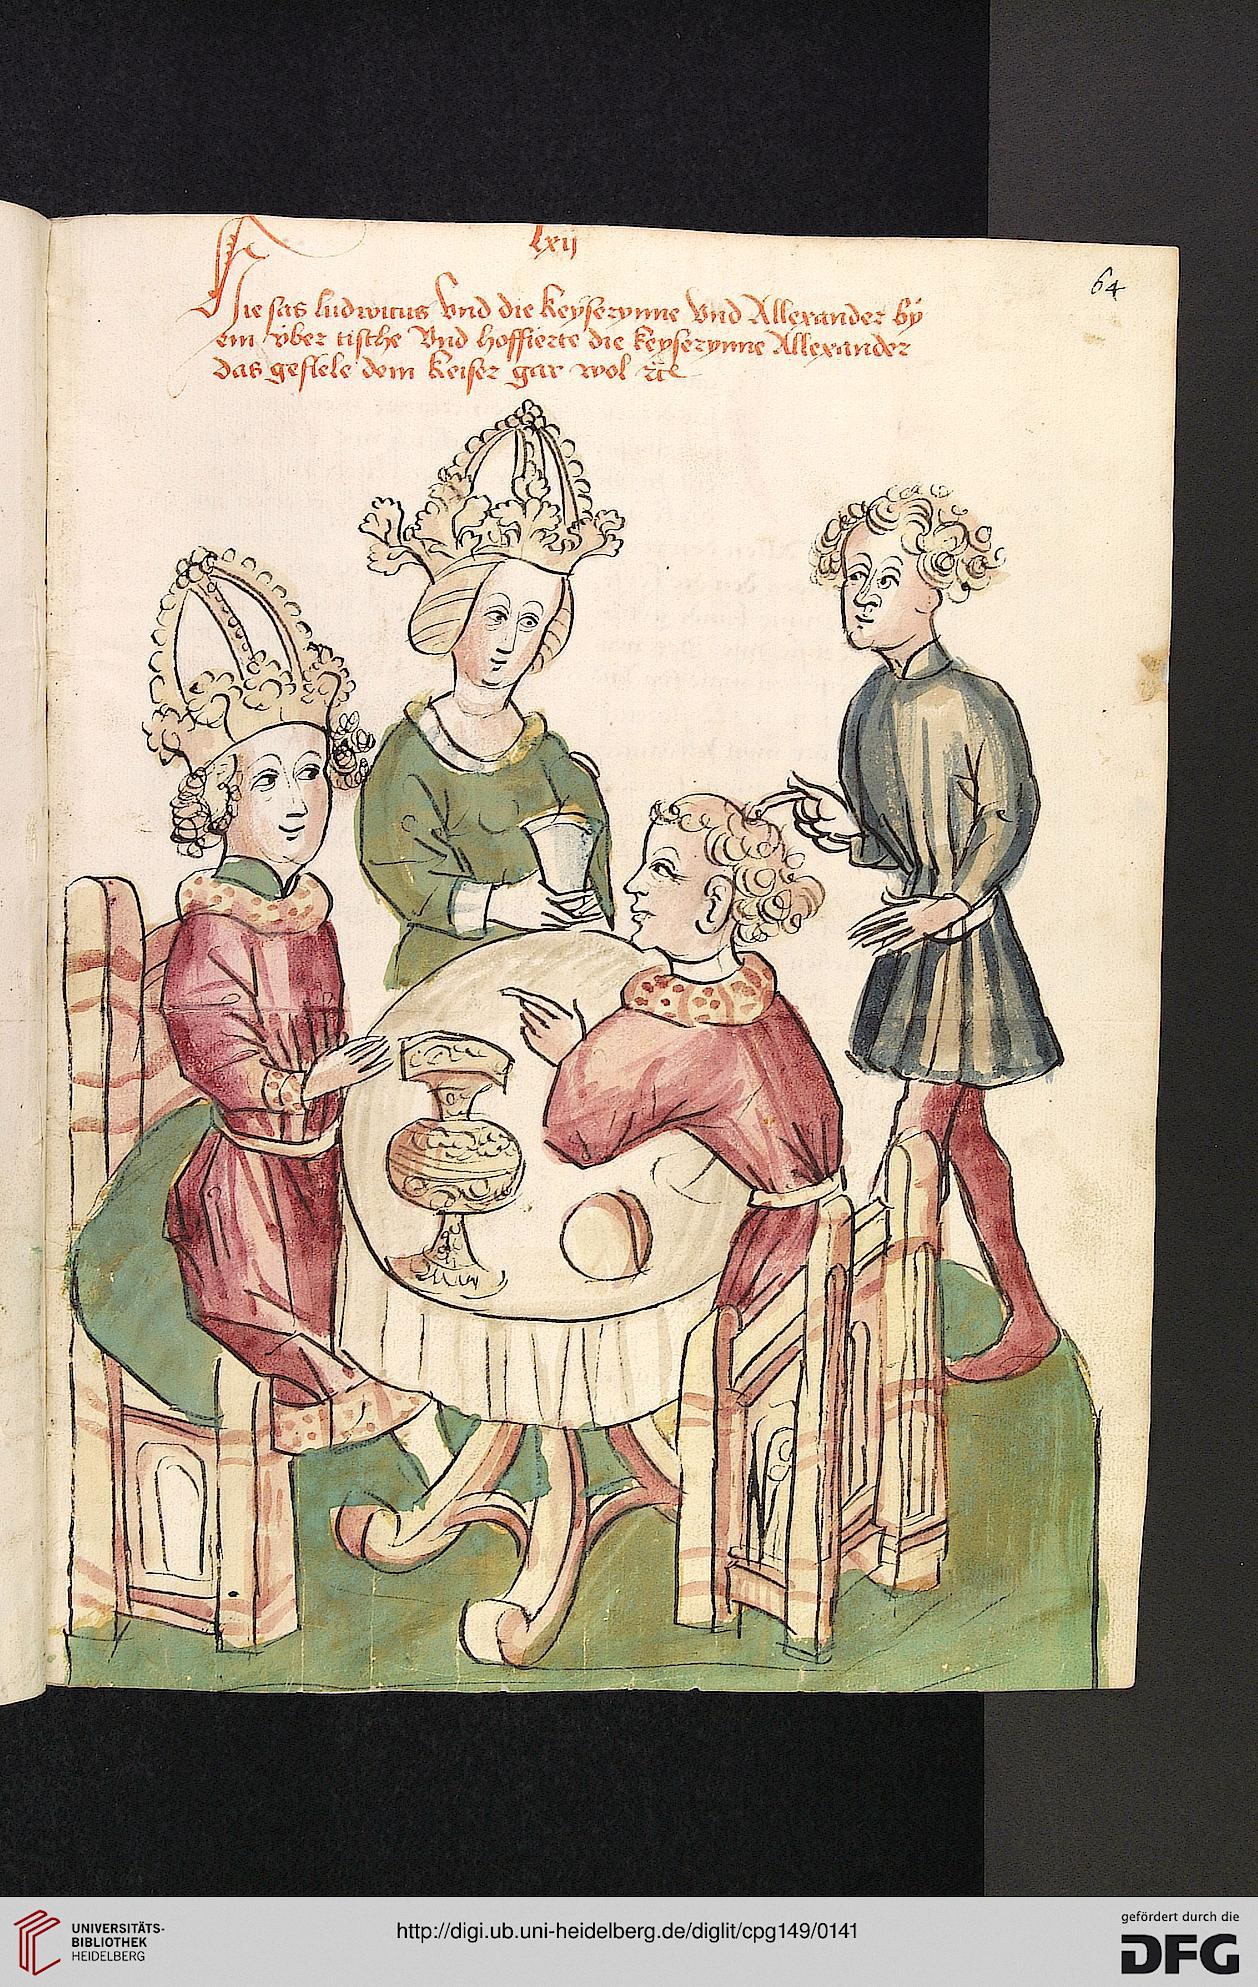 lxij
64
Hie sas ludwicus vnd die keyserynne vnd Allexander by
ein vber tische vnd hoffierte die keyserynne Allexander
das gefiele dem keiser gar wol
UNIVERSITÄTS-
BIBLIOTHEK
HEIDELBERG
http://digi.ub.uni-heidelberg.de/diglit/cpg149/0141
gefördert durch die
DFG